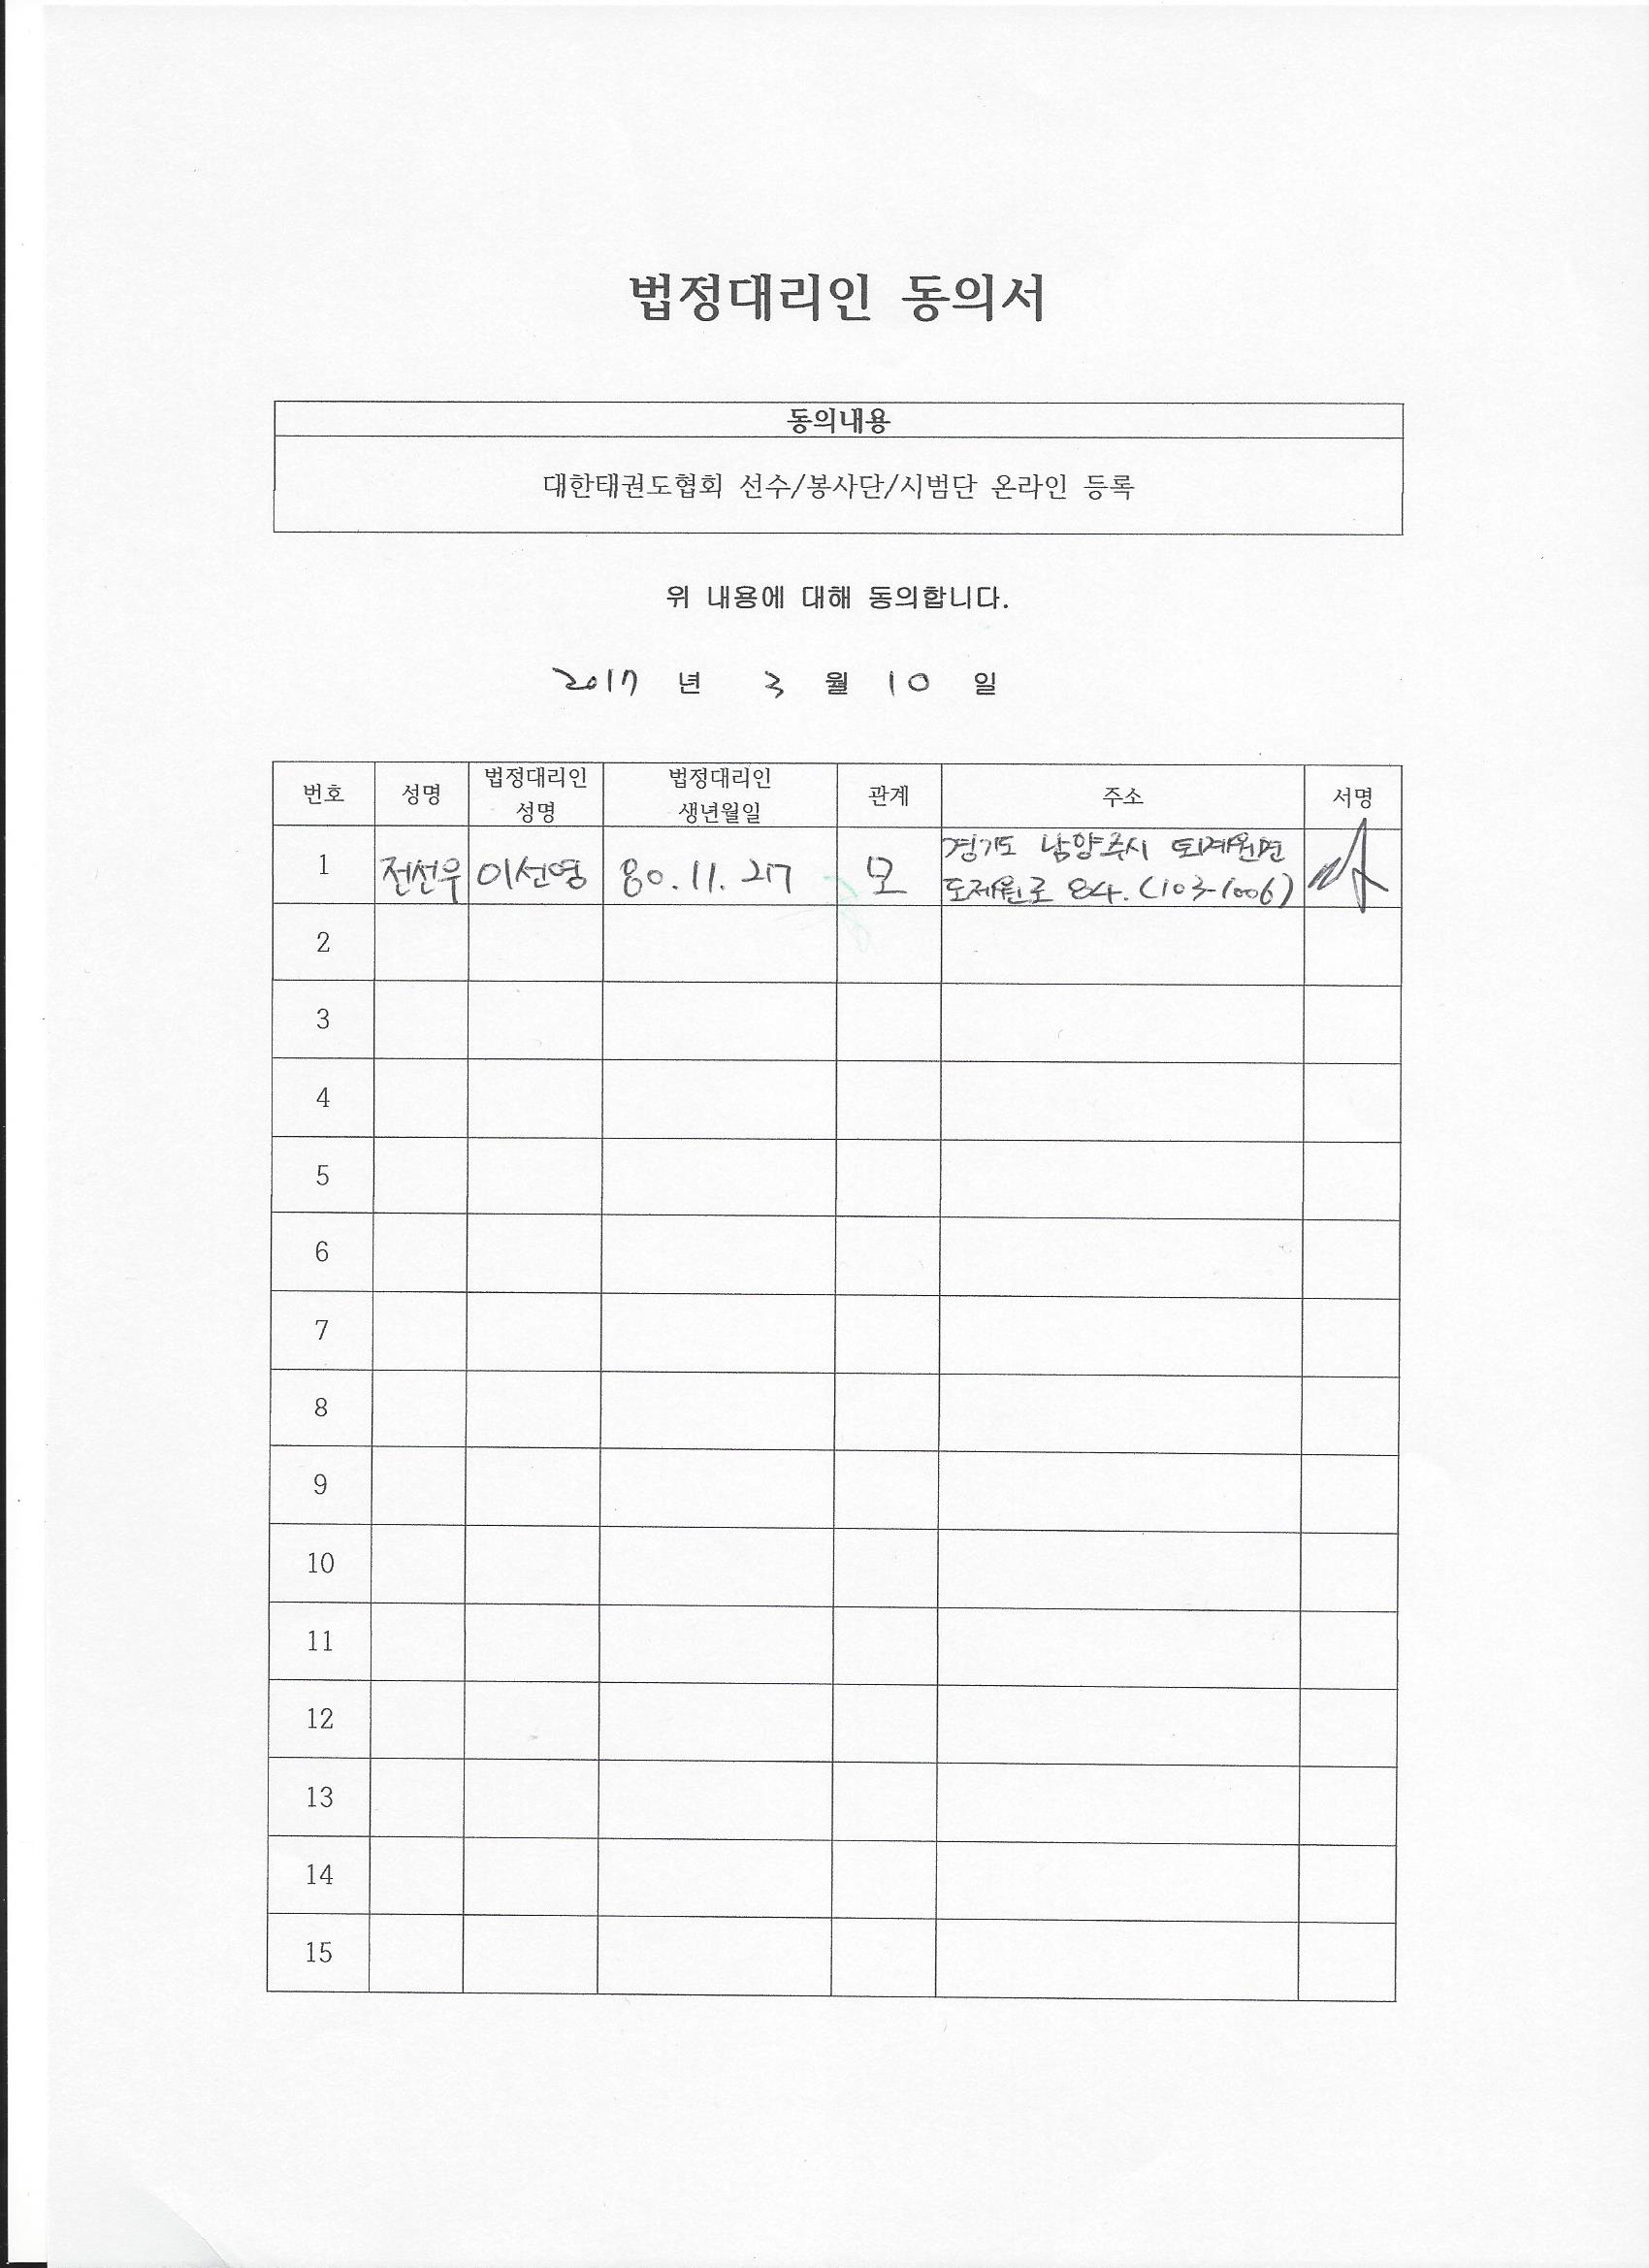 법정대리인 동의서
동의내용
대한태권도협회 선수/봉사단/시범단 온라인 등록
위 내용에 대해 동의합니다.
2017 년 3 월 10 일
번호 성명 법정대리인 성명 법정대리인 생년월일 관계 주소 서명
1 전선우 이선영 80.11.27 모 경기도 남양주시 퇴계원면
도제원로 84. (103-1006)
2
3
4
5
6
7
8
9
10
11
12
13
14
15